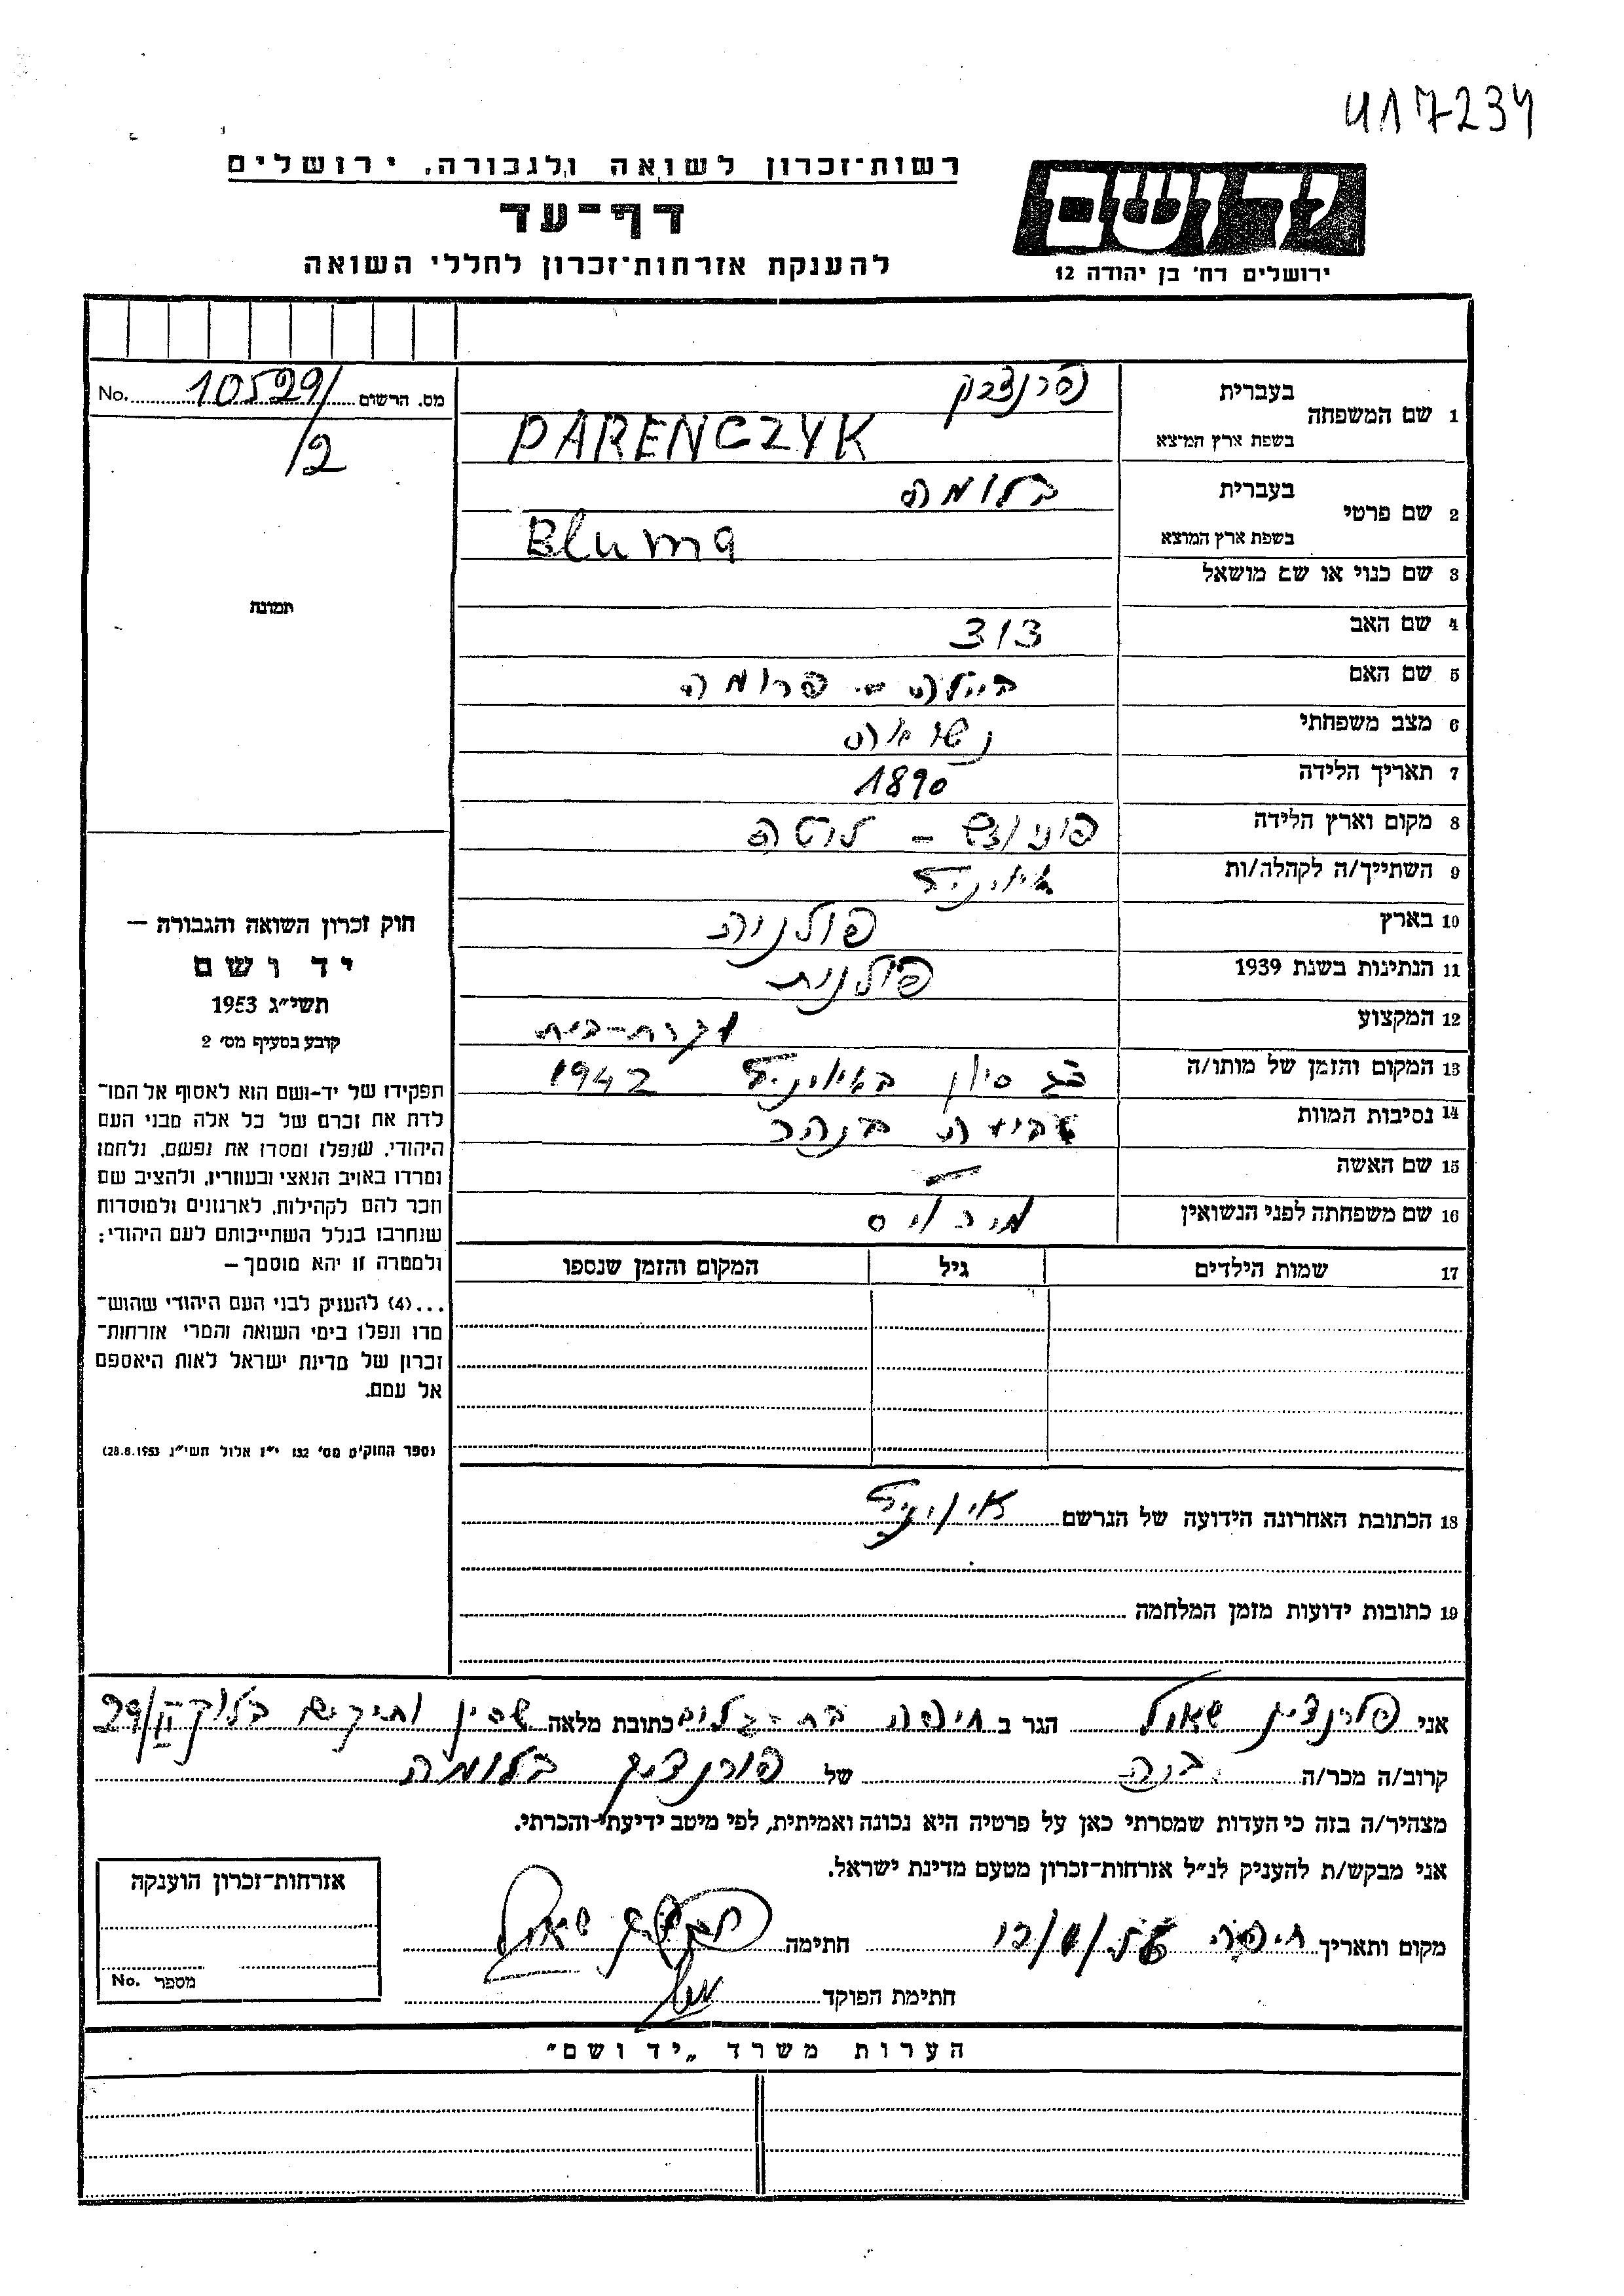 417234
רשות־זכרון לשואה ולגבורה, ירושלים
דף־עד
להענקת אזרחות־זכרון לחללי השואה
יד ושם
ירושלים רח' בן יהודה 12
No. 10529/ מס. הרשום
/2
תמונה
חוק זכרון השואה והגבורה —
יד ושם
תשי״ג 1953
קובע בסעיף מס׳ 2
תפקידו של יד-ושם הוא לאסוף אל המו־
לדת את זכרם של כל אלה מבני העם
היהודי, שנפלו ומסרו את נפשם, נלחמו
ומרדו באויב הנאצי ובעוזריו, ולהציב שם
וזכר להם לקהילות, לארגונים ולמוסדות
שנחרבו בגלל השתייכותם לעם היהודי;
ולמטרה זו יהא מוסמך —
...(4) להעניק לבני העם היהודי שהוש־
מדו ונפלו בימי השואה והמרי אזרחות־
זכרון של מדינת ישראל לאות היאספם
אל עמם.
(ספר החוקים מס׳ 132 י״ז אלול תשי״ג 28.8.1953)
1 שם המשפחה בעברית פרנצ'יק
בשפת ארץ המוצא PARENCZYK
2 שם פרטי בעברית בלומה
בשפת ארץ המוצא Bluma
3 שם כנוי או שם מושאל
4 שם האב
5 שם האם ביילה - פרומה
6 מצב משפחתי נשואה
7 תאריך הלידה 1890
8 מקום וארץ הלידה
9 השתייך/ה לקהלה/ות
10 בארץ פולניה
11 הנתינות בשנת 1939 פולנית
12 המקצוע עקרת-בית
13 המקום והזמן של מותו/ה סיון 1942
14 נסיבות המוות טביעה בנהר
15 שם האשה —
16 שם משפחתה לפני הנשואין
17 שמות הילדים גיל המקום והזמן שנספו
18 הכתובת האחרונה הידועה של הנרשם
19 כתובות ידועות מזמן המלחמה
אני שאול הגר ב חיפה בת-גלים כתובת מלאה שכון ותיקים בלוק 29/II
קרוב/ה מכר/ה בנה של בלומה
מצהיר/ה בזה כי העדות שמסרתי כאן על פרטיה היא נכונה ואמיתית, לפי מיטב ידיעתי והכרתי.
אני מבקש/ת להעניק לנ״ל אזרחות־זכרון מטעם מדינת ישראל.
מקום ותאריך חיפה חתימה שאול
חתימת הפוקד
אזרחות־זכרון הוענקה
No. מספר
הערות משרד „יד ושם״